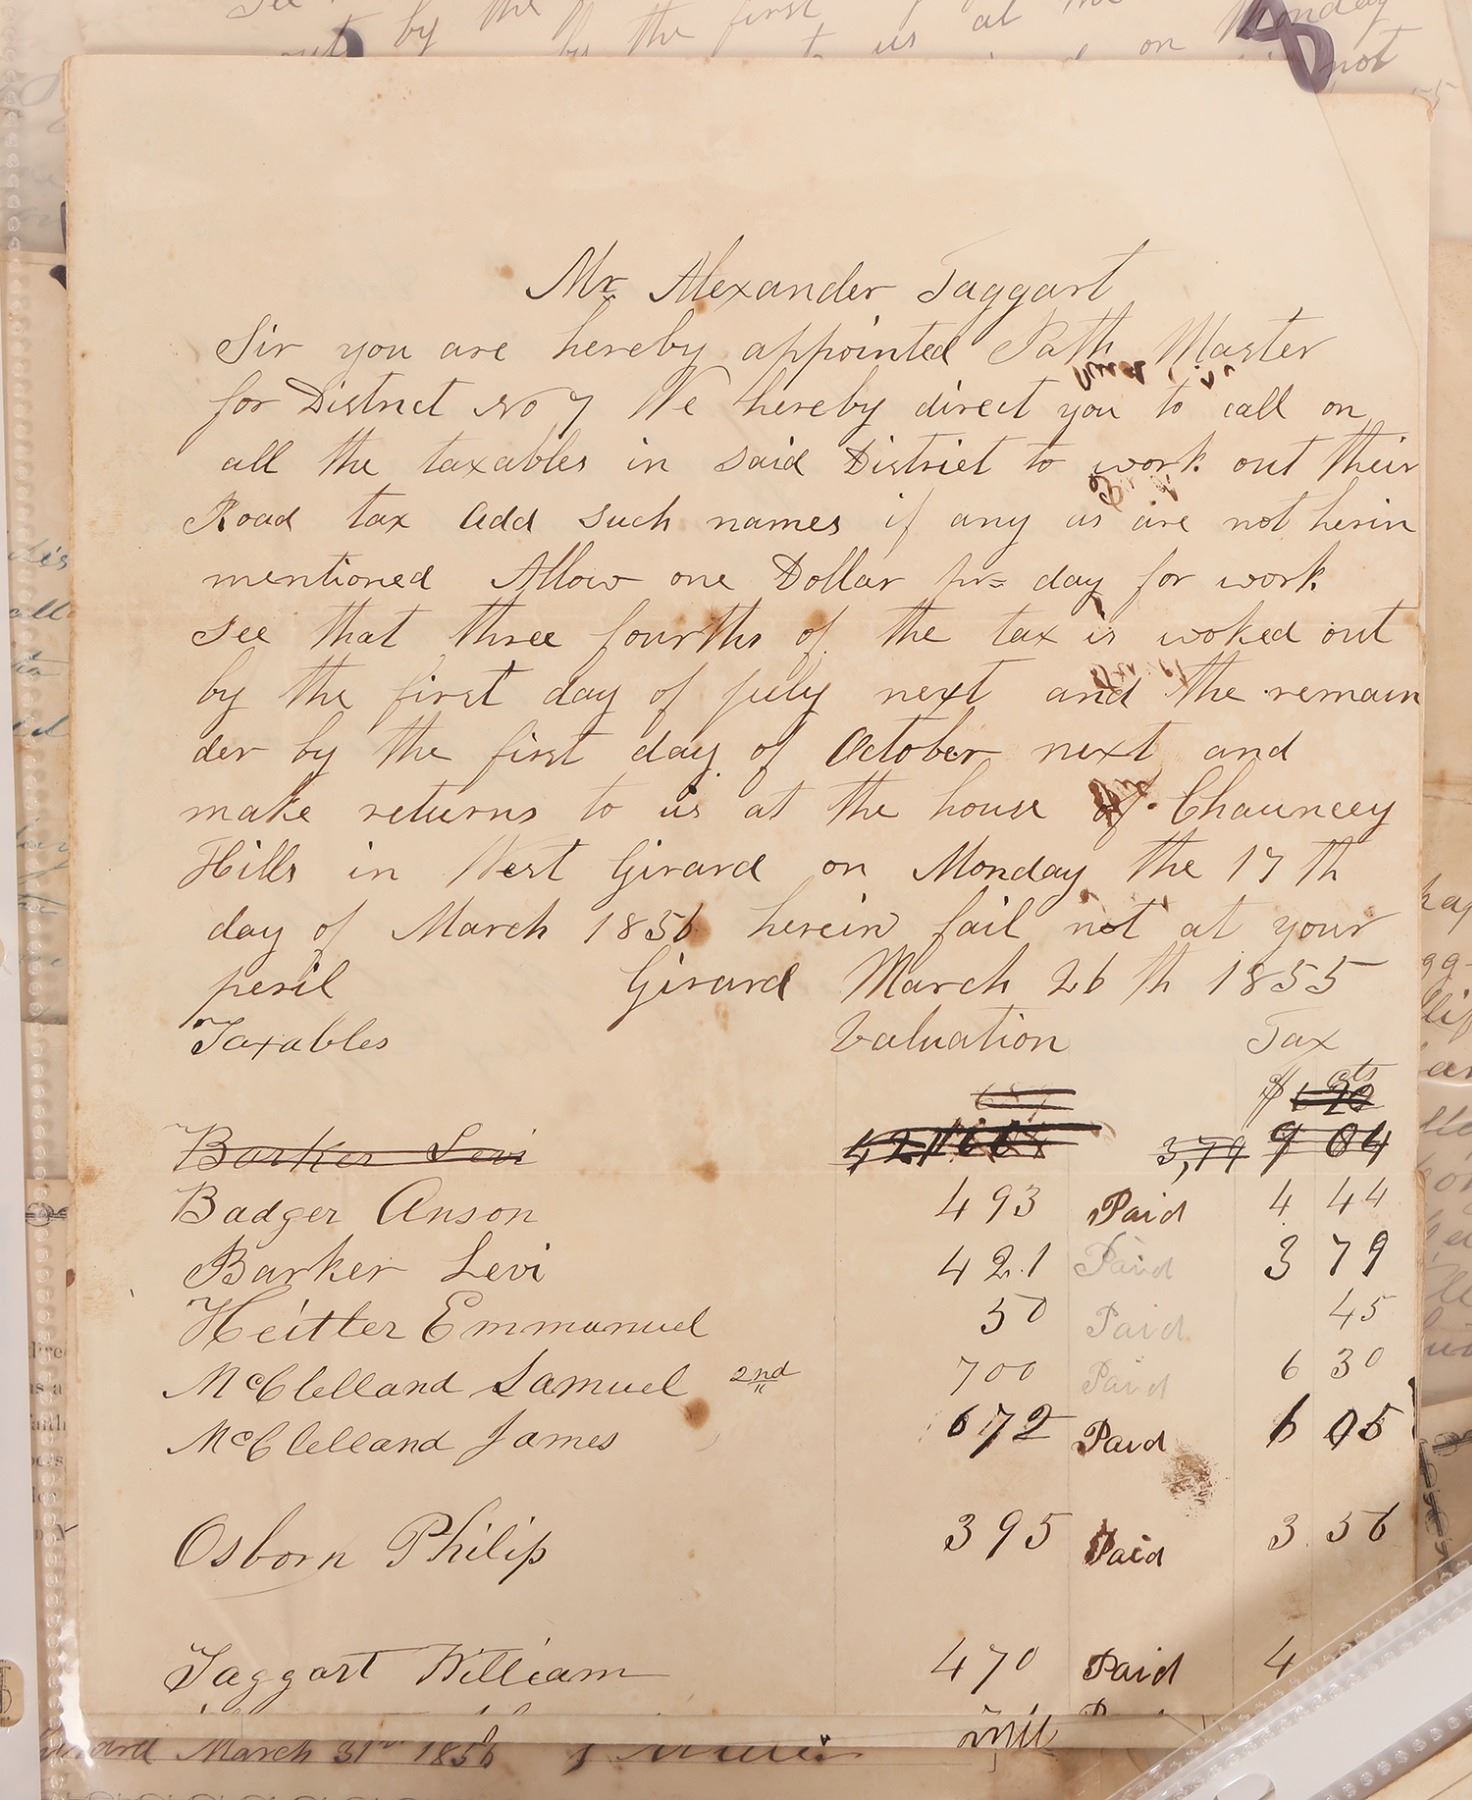 Mr Alexander Taggart
Sir you are hereby appointed Path Master
for District No 7 We hereby direct you to call on
all the taxables in said District to work out their
Road tax Add such names if any as are not herin
mentioned Allow one Dollar pr= day for work
see that three fourths of the tax is woked out
by the first day of july next and the remain
der by the first day of October next and
make returns to us at the house of Chauncey
Hills in West Girard on Monday the 17 th
day of March 1856 herein fail not at your
peril Girard March 26 th 1855
Taxables Valuation Tax
$ cts
Barker Levi 421 3,79 9 04
Badger Anson 493 Paid 4 44
Barker Levi 421 Paid 3 79
Heitler Emmanuel 50 Paid 45
McClelland Samuel 2nd 700 Paid 6 30
McClelland James 672 Paid 6 05
Osborn Philip 395 Paid 3.56
Taggart William 470 Paid 4
March 31st 1856